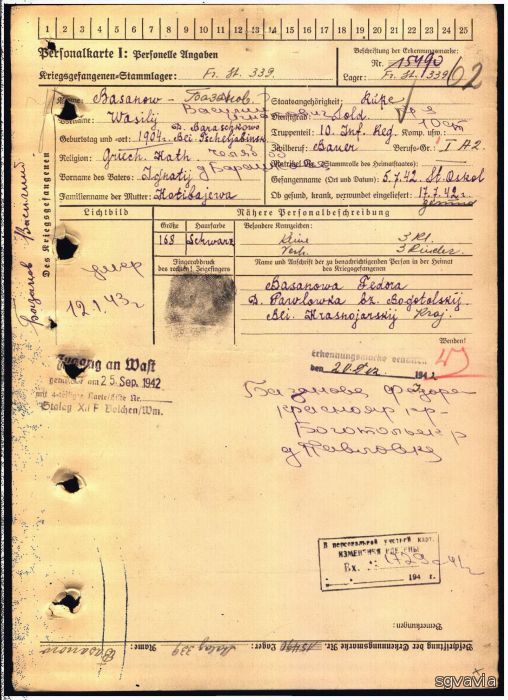 1 2 3 4 5 6 7 8 9 10 11 12 13 14 15 16 17 18 19 20 21 22 23 24 25
Personalkarte I: Personelle Angaben
Kriegsgefangenen-Stammlager: Fr. St. 339.
Beschriftung der Erkennungsmarke:
Nr. 15490
Lager: Fr. St. 339
62
Des Kriegsgefangenen
Name: Basanow - Базанов
Vorname: Wasilij Василий
Geburtstag und -ort: 1904. Bei Tscheljabinsk
D. Baraschkowo
Religion: Griech. Kath.
Vorname des Vaters: Ignatij
Familienname der Mutter: Hotibajewa
Staatsangehörigkeit: Russe
Dienstgrad: Sold.
Truppenteil: 10. Inf. Reg. Komp. usw.:
Zivilberuf: Bauer Berufs-Gr.: I A2
Matrikel Nr. (Stammrolle des Heimatstaates):
Gefangennahme (Ort und Datum): 5.7.42. St. Oskol
Ob gesund, krank, verwundet eingeliefert: 17.7.42.
gesund
Базанов Василий
Lichtbild
Nähere Personalbeschreibung
Größe Haarfarbe Besondere Kennzeichen:
168 Schwarz
3 Kl.
Verh. 3 Kinder
Fingerabdruck
des rechten Zeigefingers
Name und Anschrift der zu benachrichtigenden Person in der Heimat
des Kriegsgefangenen
Basanowa Fedora
D. Pawlowka Bz. Bogotolskij
Bei Krasnojarskij Kraj.
Wenden!
умер
12.1.43 г
Zugang an Wast
gemeldet am 25. Sep. 1942
Stalag XII F Bolchen/Wm.
Erkennungsmarke
den 194
Базанова Федора
Красноярск кр.
Боготольск р
д Павловка
В персональной учетной карт.
ИЗМЕНЕНИЯ
Вх.
194 г.
Bemerkungen:
Beschriftung der Erkennungsmarke Nr. 15490 Lager: Stalag 339 Name: Basanow
sgvavia